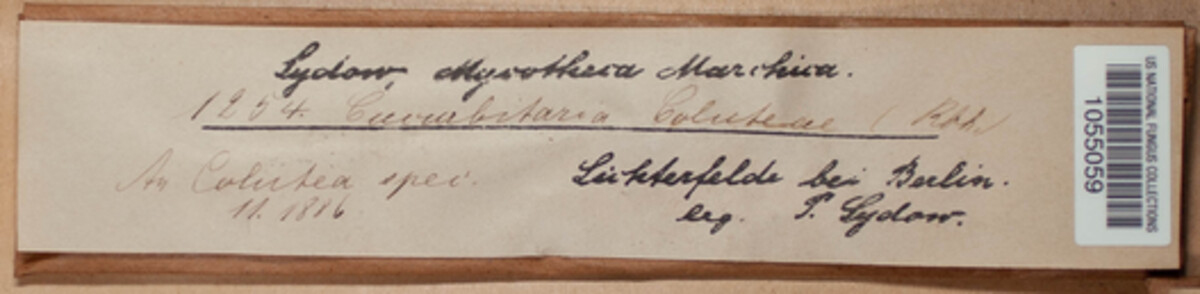 Sydow, Mycotheca Marchica.
1254. Cucurbitaria Coluteae (Rbh.)
An Colutea spec.
11. 1886.
Lichterfelde bei Berlin.
leg. P. Sydow.
US NATIONAL FUNGUS COLLECTIONS
1055059